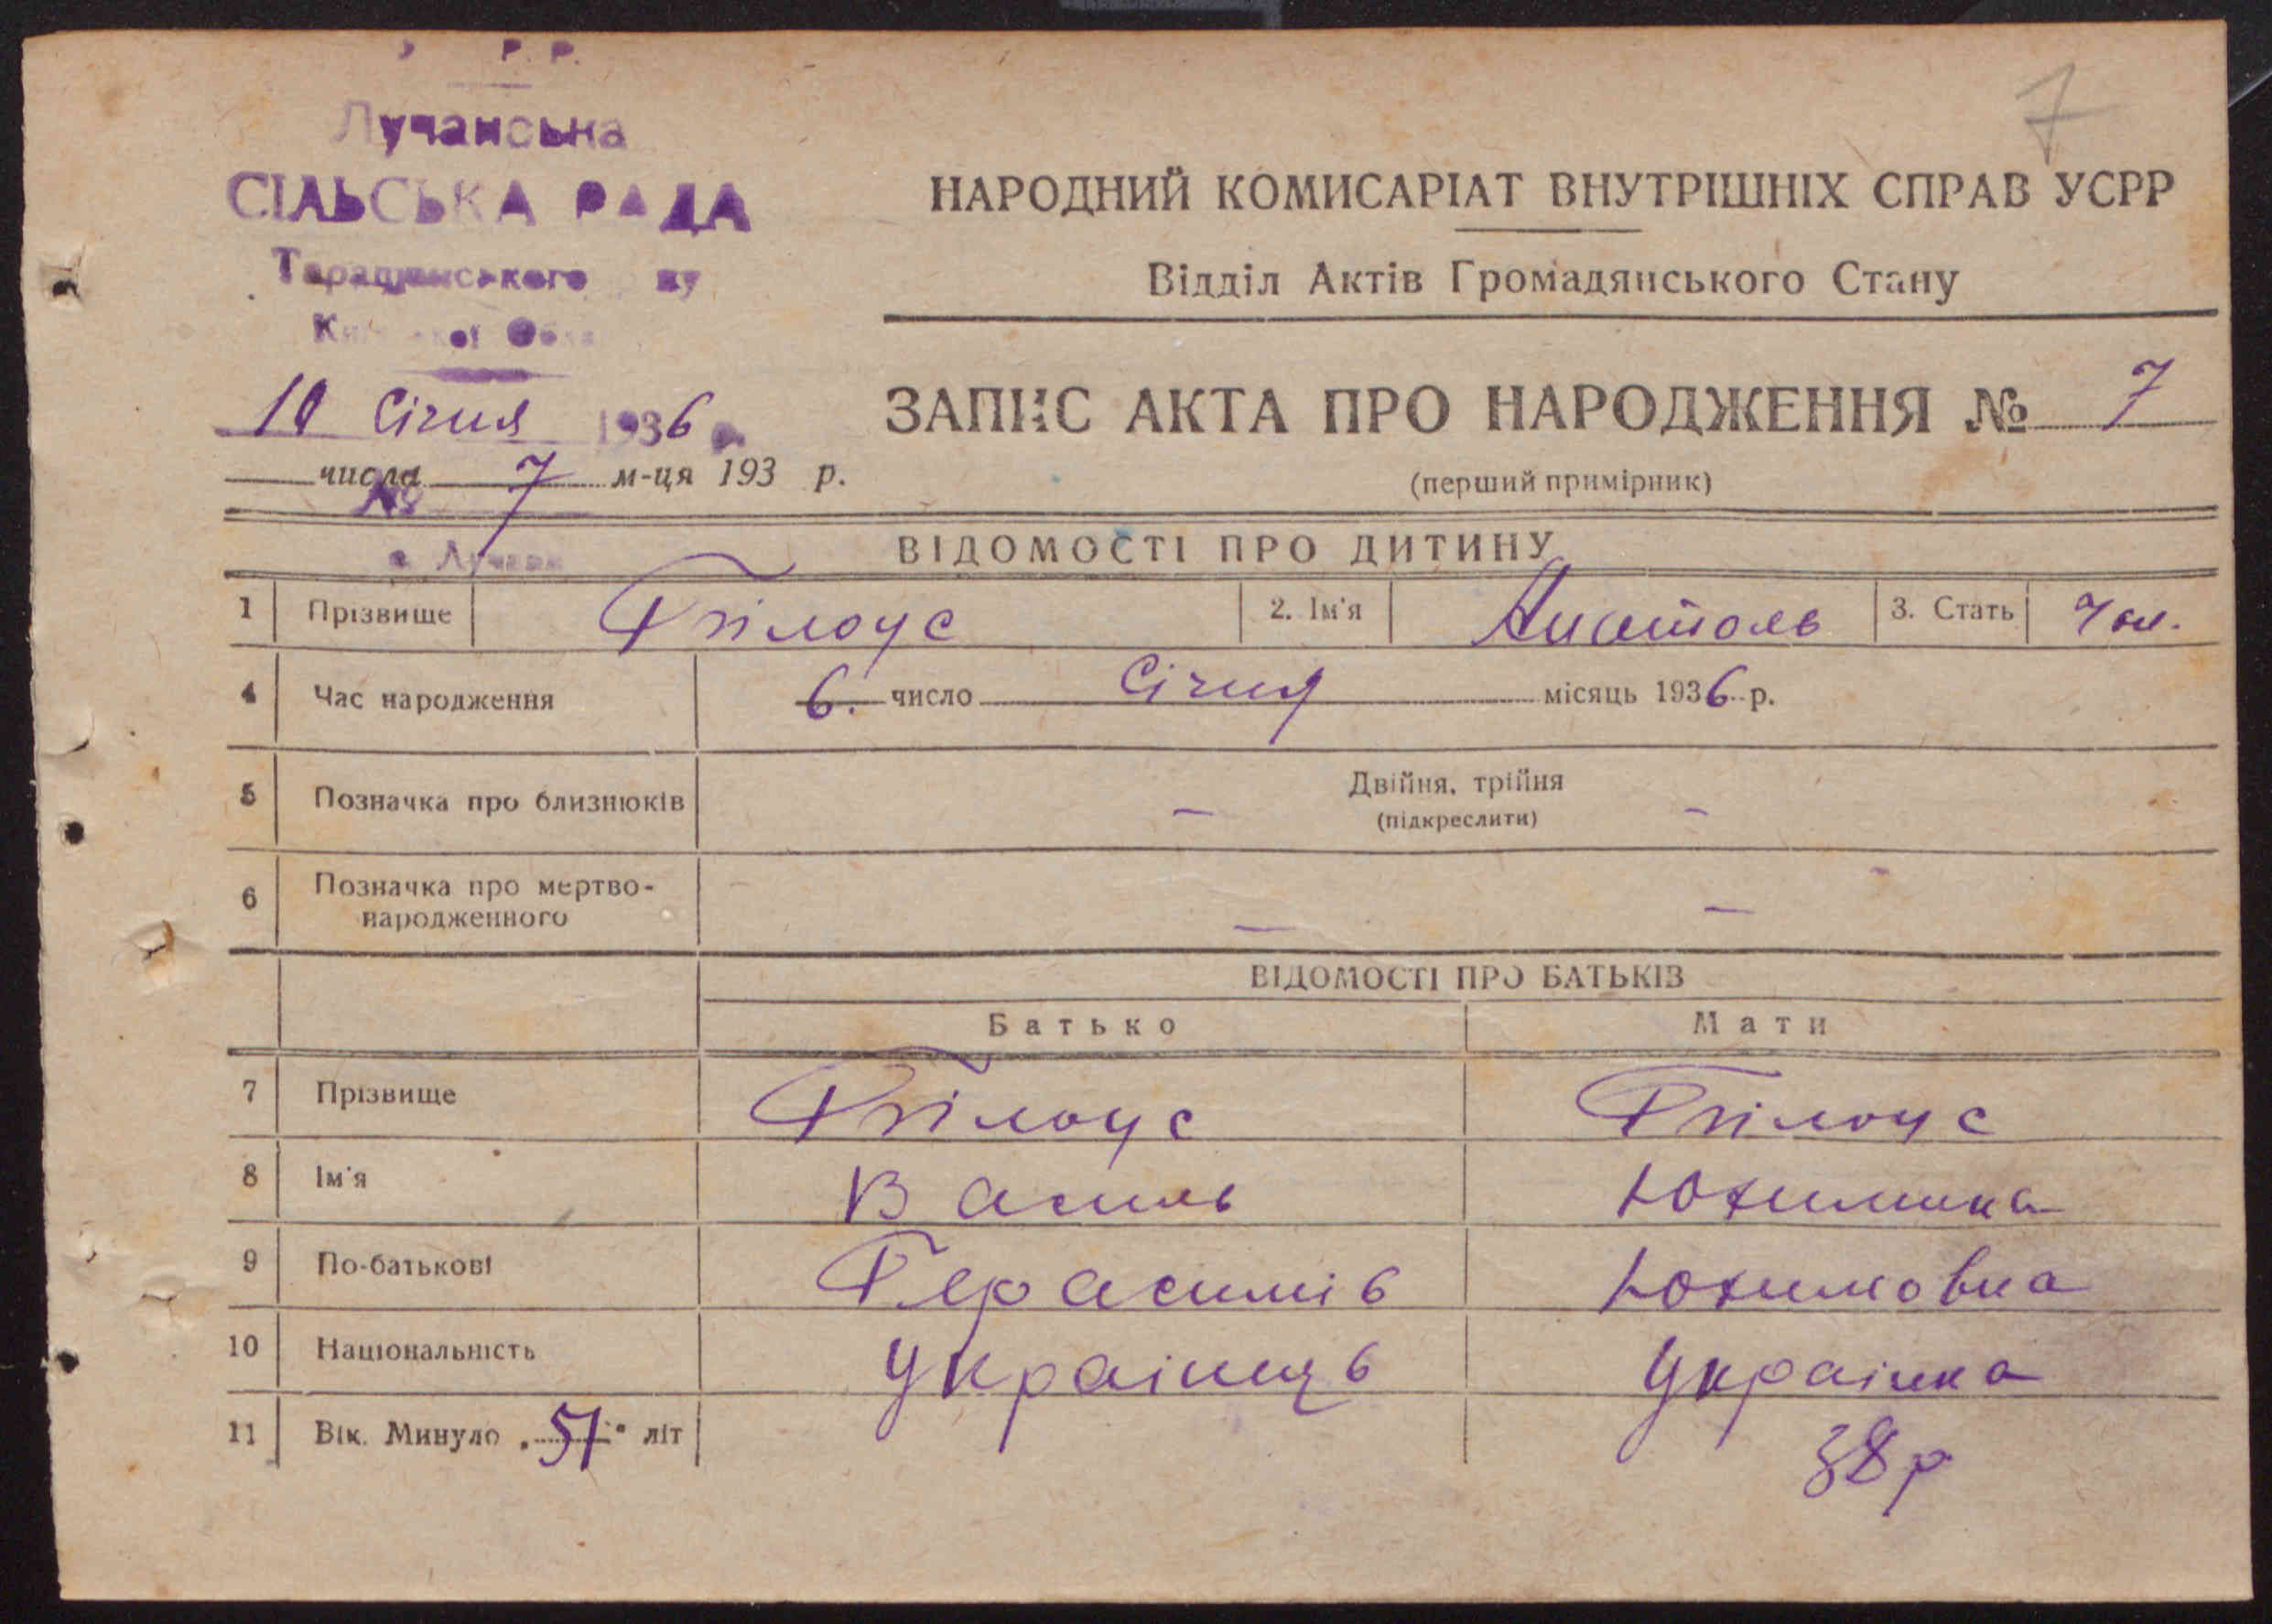 Р. Р.
7
Лучанська
СІЛЬСЬКА РАДА
НАРОДНИЙ КОМИСАРІАТ ВНУТРІШНІХ СПРАВ УСРР
Таращанського
Відділ Актів Громадянського Стану
10 Січня 1936 р.
ЗАПИС АКТА ПРО НАРОДЖЕННЯ № 7
числа м-ця 193 р.
(перший примірник)
№ 7
с. Лучани
ВІДОМОСТІ ПРО ДИТИНУ
1 Прізвище Білоус 2. Ім'я Анатоль 3. Стать Чол.
4 Час народження 6. число Січня місяць 1936 р.
5 Позначка про близнюків – Двійня, трійня –
(підкреслити)
6 Позначка про мертво-
народженного – –
ВІДОМОСТІ ПРО БАТЬКІВ
Батько Мати
7 Прізвище Білоус Білоус
8 Ім'я Василь Юхимина
9 По-батькові Герасимів Юхимовна
10 Національність Українець Українка
11 Вік. Минуло „51" літ 38 р